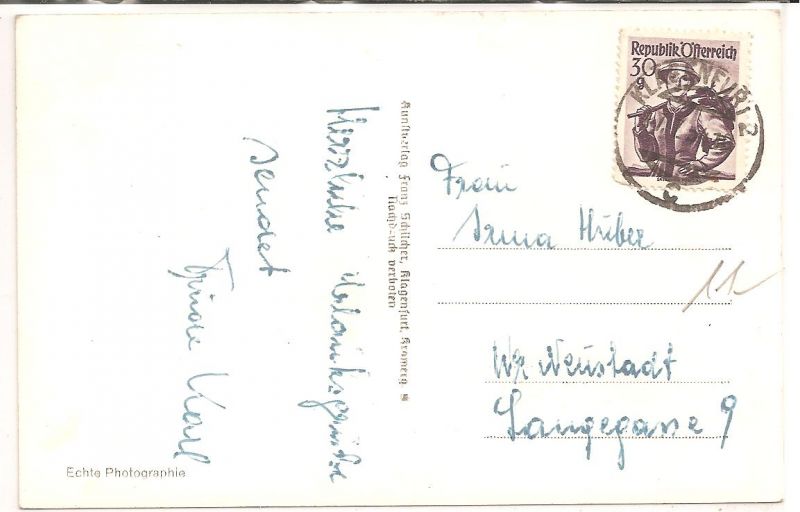 Herzliche Urlaubsgrüße
sendet
Karl
Echte Photographie
Kunstverlag Franz Schilcher, Klagenfurt, Kramerg. 4
Nachdruck verboten
Republik Österreich
30
g
KLAGENFURT 2
Frau
Irma Huber
11
Wr Neustadt
Langegasse 9